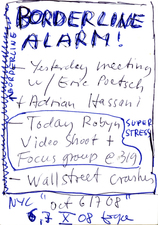 BORDERLINE
ALARM!
BORDERLINE
Yesterday meeting
w/ Eric Poetsch
+ Adrian Hassani
Today Robyn
Video Shoot +
Focus group @ 319
SUPER
STRESS
Wallstreet crashes
NYC "oct 6 17 08"
6, 7 X 08